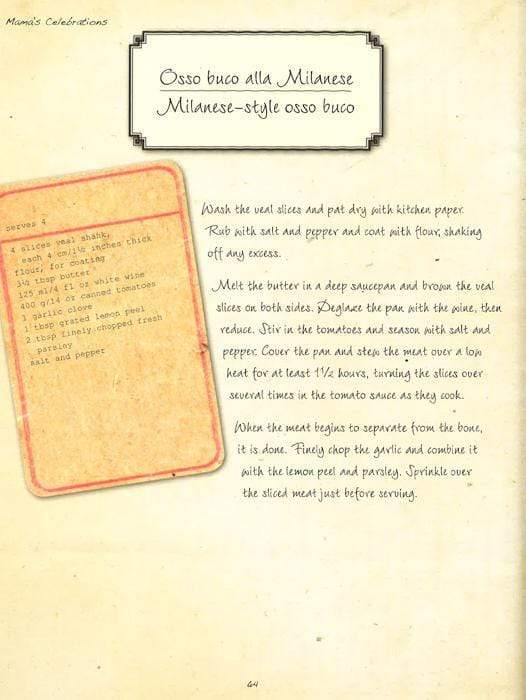 Mama's Celebrations
Osso buco alla Milanese
Milanese-style osso buco
serves 4
4 slices veal shank,
each 4 cm/1½ inches thick
flour, for coating
3½ tbsp butter
125 ml/4 fl oz white wine
400 g/14 oz canned tomatoes
1 garlic clove
1 tbsp grated lemon peel
2 tbsp finely chopped fresh
parsley
salt and pepper
Wash the veal slices and pat dry with kitchen paper.
Rub with salt and pepper and coat with flour, shaking
off any excess.
Melt the butter in a deep saucepan and brown the veal
slices on both sides. Deglaze the pan with the wine, then
reduce. Stir in the tomatoes and season with salt and
pepper. Cover the pan and stew the meat over a low
heat for at least 1½ hours, turning the slices over
several times in the tomato sauce as they cook.
When the meat begins to separate from the bone,
it is done. Finely chop the garlic and combine it
with the lemon peel and parsley. Sprinkle over
the sliced meat just before serving.
64